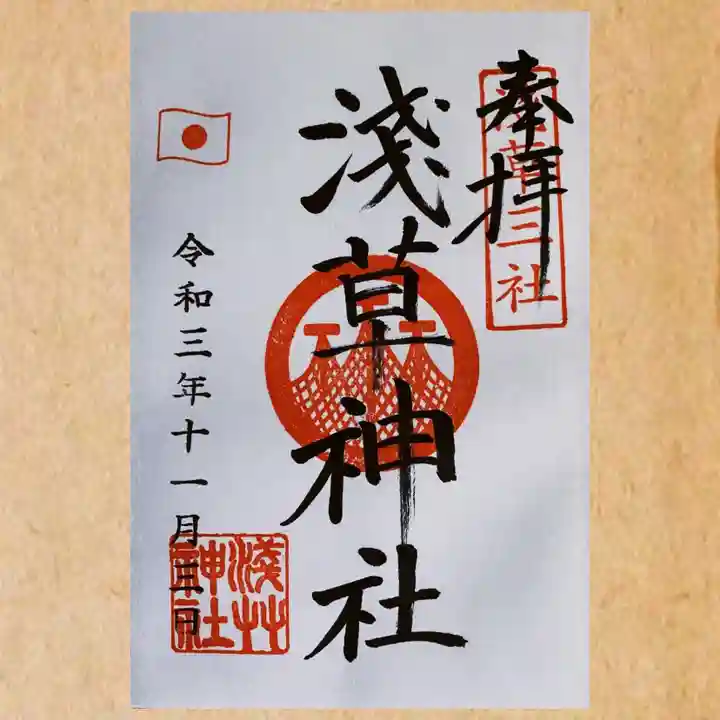 奉拝
淺草三社
淺草神社
令和三年十一月三日
淺艸神社